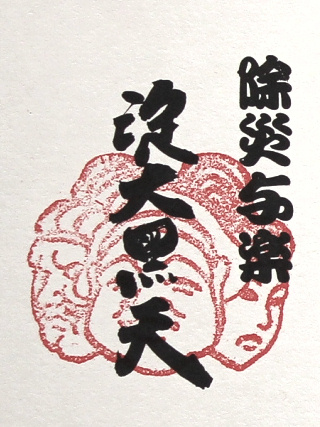 除災与楽
淀大黒天